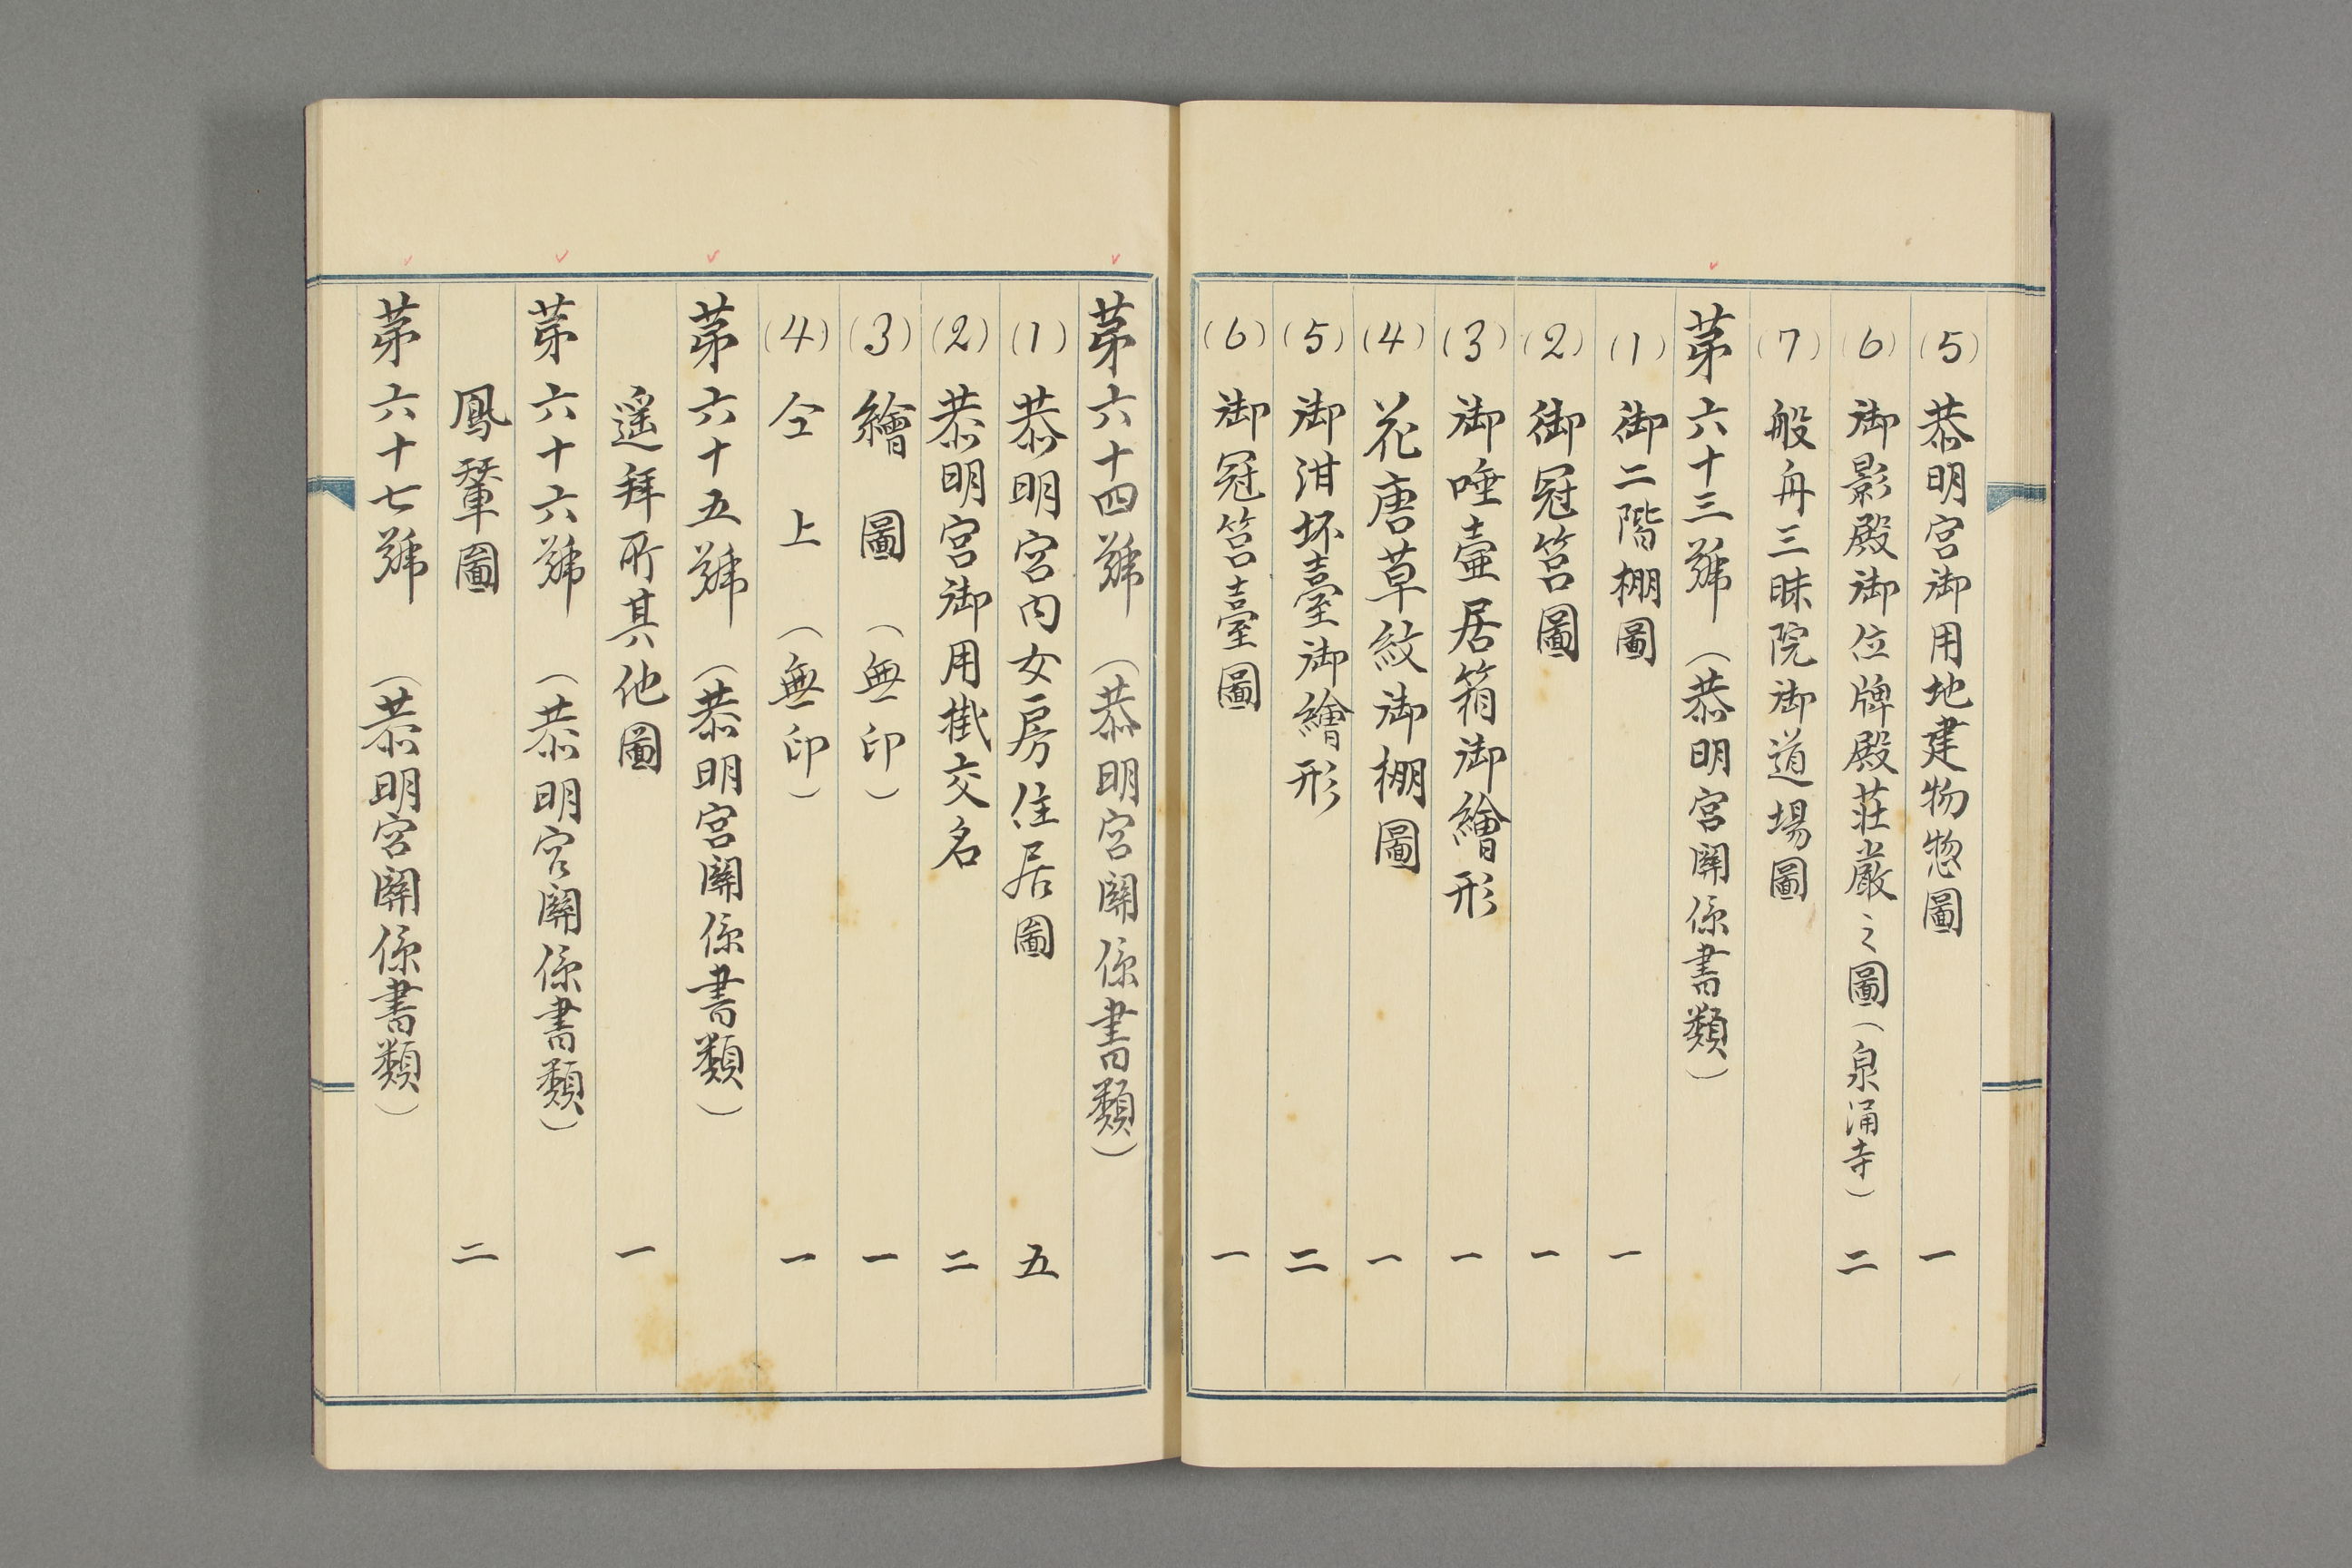 (5) 恭明宮御用地建物惣圖 一
(6) 御影殿御位牌殿荘厳之圖(泉涌寺) 二
(7) 般舟三昧院御道場圖
第六十三號(恭明宮關係書類)
(1) 御二階棚圖 一
(2) 御冠筥圖 一
(3) 御唾壷居箱御繪形 一
(4) 花唐草紋御棚圖 一
(5) 御泔坏臺御繪形 二
(6) 御冠筥臺圖 一
第六十四號(恭明宮關係書類)
(1) 恭明宮内女房住居圖 五
(2) 恭明宮御用掛交名 二
(3) 繪圖(無印) 一
(4) 仝上(無印) 一
第六十五號(恭明宮關係書類)
遥拜所其他圖 一
第六十六號(恭明宮關係書類)
鳳輦圖 二
第六十七號(恭明宮關係書類)